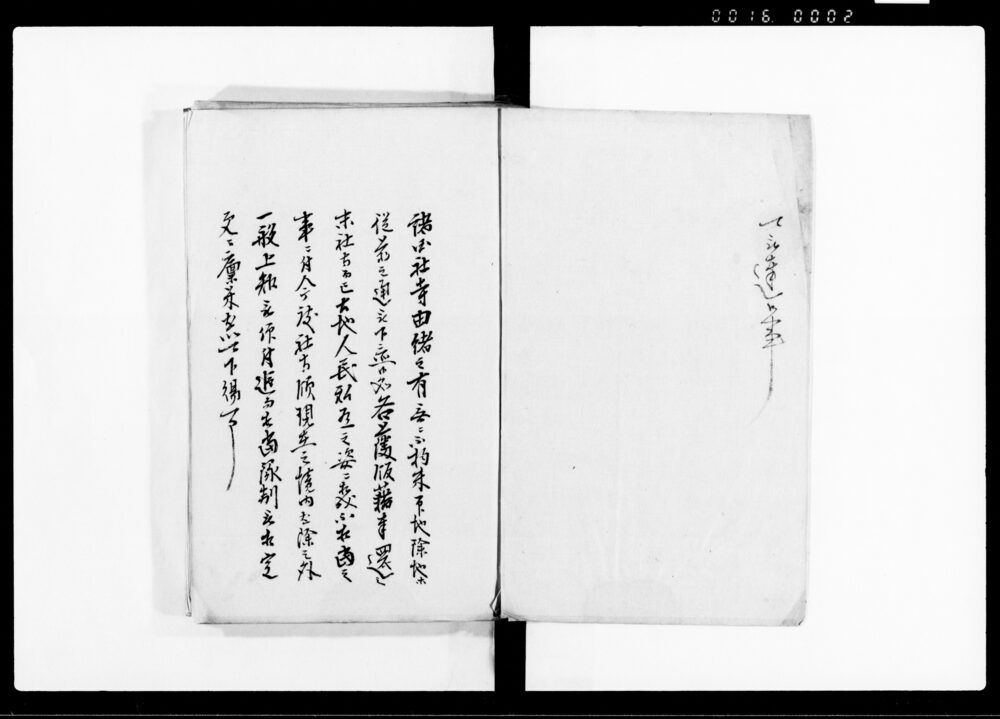 0016 0002
可被達候事
諸国社寺由緒之有無ニ不拘朱印地除地等
従前之通被下置候処各藩版籍奉還之
末社寺而已土地人民私有之姿ニ相成不相当之
事ニ付今度社寺領現在之境内を除之外
一般上知被仰付追而相当禄制被相定
更ニ廩米を以可下賜事